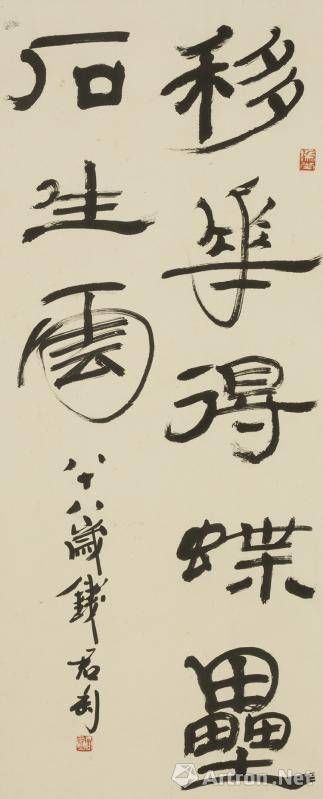 移華得蝶壘
石生雲
八十八歲錢君匋
Artron.Net